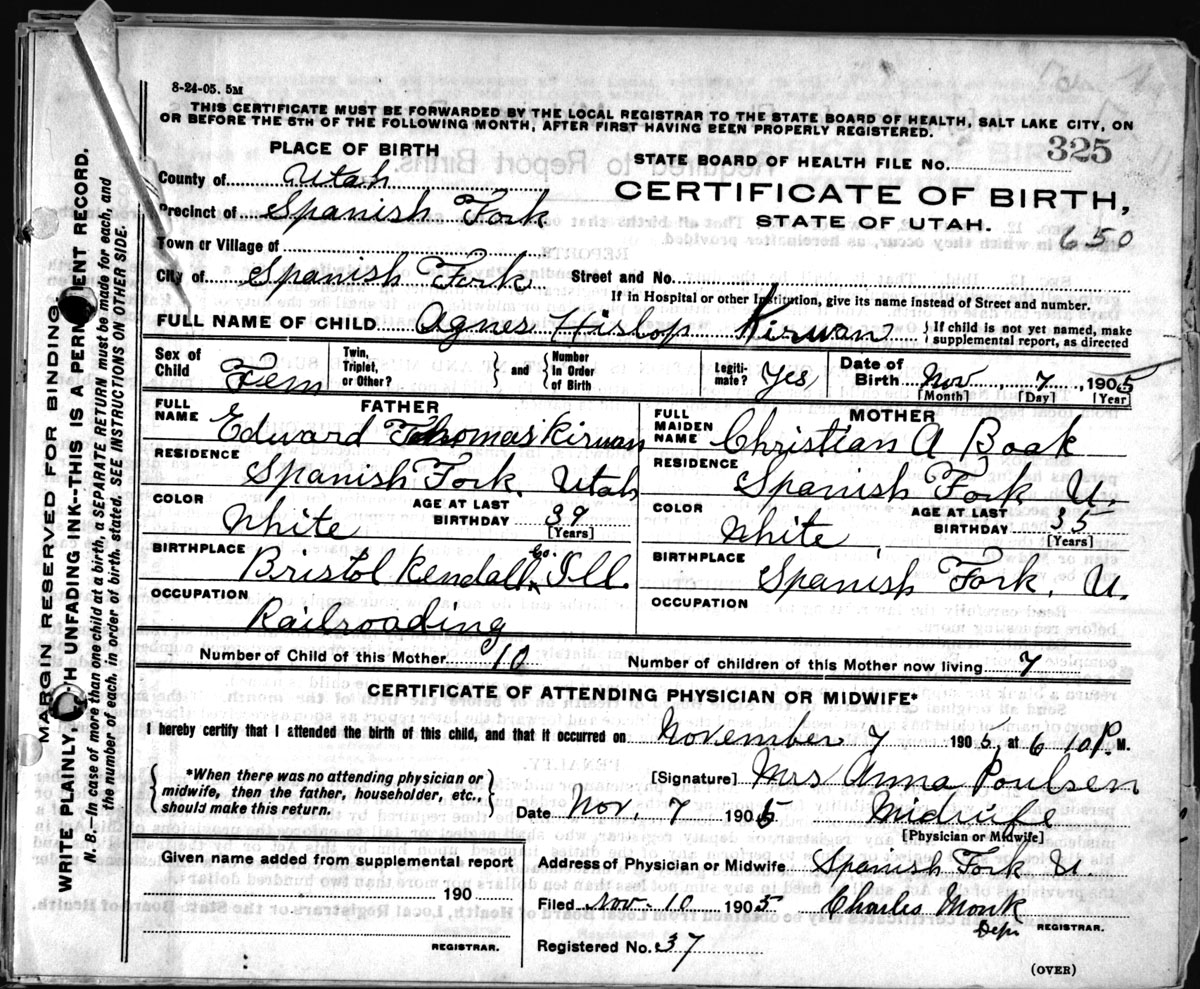 8-24-05. 5M
THIS CERTIFICATE MUST BE FORWARDED BY THE LOCAL REGISTRAR TO THE STATE BOARD OF HEALTH, SALT LAKE CITY, ON
OR BEFORE THE 5TH OF THE FOLLOWING MONTH, AFTER FIRST HAVING BEEN PROPERLY REGISTERED.
PLACE OF BIRTH
STATE BOARD OF HEALTH FILE NO. 325
County of Utah
CERTIFICATE OF BIRTH,
Precinct of Spanish Fork
STATE OF UTAH.
650
Town or Village of
City of Spanish Fork Street and No.
If in Hospital or other Institution, give its name instead of Street and number.
FULL NAME OF CHILD Agnes Hislop Kirwan { If child is not yet named, make supplemental report, as directed
Sex of Child Fem Twin, Triplet, or Other? } and { Number In Order of Birth Legiti-mate? Yes Date of Birth Nov, 7, 1905
[Month] [Day] [Year]
FATHER
FULL NAME Edward Thomas Kirwan
RESIDENCE Spanish Fork. Utah
COLOR White AGE AT LAST BIRTHDAY 39 [Years]
BIRTHPLACE Bristol Kendall Co. Ill.
OCCUPATION Railroading
MOTHER
FULL MAIDEN NAME Christian A Boak
RESIDENCE Spanish Fork U.
COLOR White AGE AT LAST BIRTHDAY 35 [Years]
BIRTHPLACE Spanish Fork, U.
OCCUPATION
Number of Child of this Mother 10 Number of children of this Mother now living 7
CERTIFICATE OF ATTENDING PHYSICIAN OR MIDWIFE*
I hereby certify that I attended the birth of this child, and that it occurred on November 7 1905, at 6 10 P. M.
{ *When there was no attending physician or
midwife, then the father, householder, etc.,
should make this return. }
[Signature] Mrs Anna Poulsen
Date Nov, 7 1905 Midwife
[Physician or Midwife]
Given name added from supplemental report
190
REGISTRAR.
Address of Physician or Midwife Spanish Fork U.
Filed Nov. 10 1905 Charles Monk
Depu REGISTRAR.
Registered No. 37
(OVER)
MARGIN RESERVED FOR BINDING
WRITE PLAINLY, UNFADING INK--THIS IS A RECORD.
N. B.--In case of more than one child at a birth, a SEPARATE RETURN must be made for each, and
the number of each, in order of birth, stated. SEE INSTRUCTIONS ON OTHER SIDE.